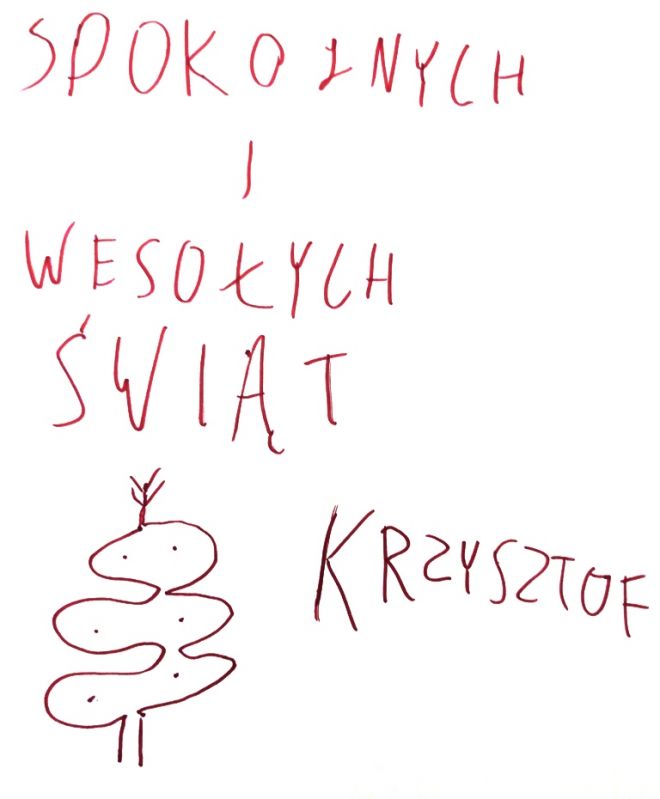 SPOKOJNYCH
I
WESOŁYCH
ŚWIĄT
KRZYSZTOF